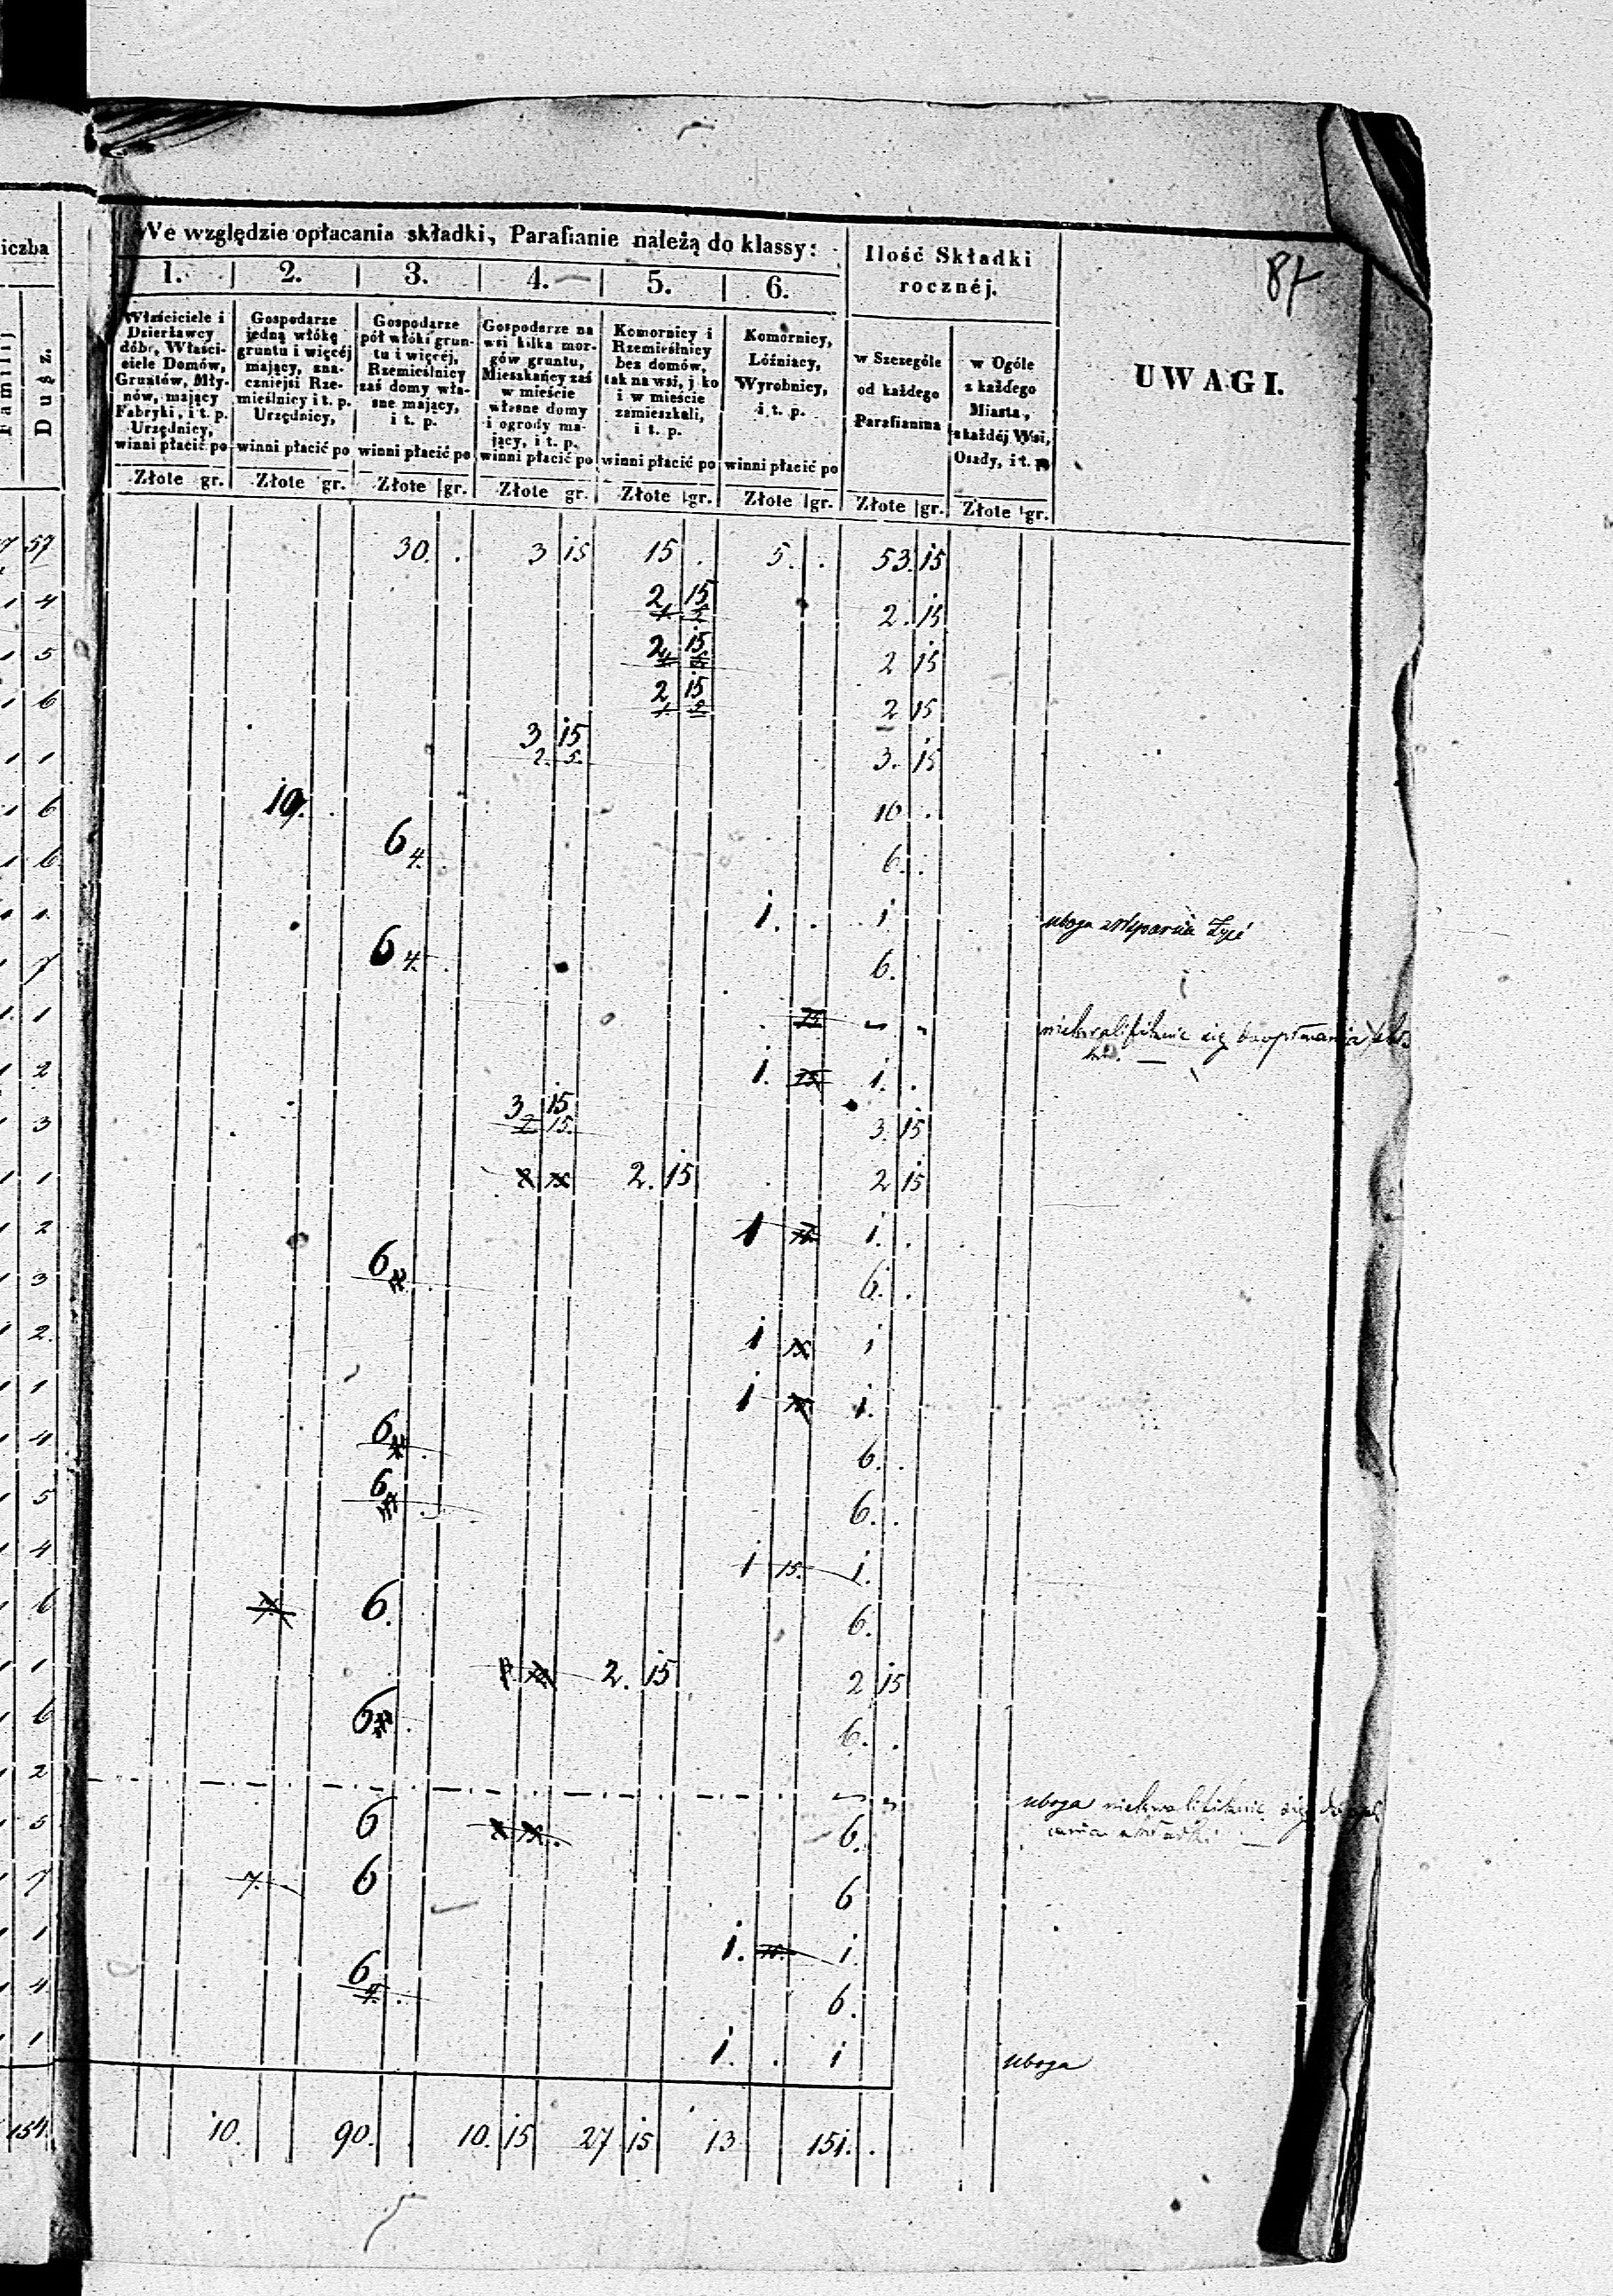 87
iczba
We względzie opłacania składki, Parafianie należą do klassy:
Ilość Składki rocznéj.
UWAGI.
1. 2. 3. 4. 5. 6.
Dusz.
Właściciele i Dzierżawcy dóbr, Właściciele Domów, Gruntów, Młynów, mający Fabryki, i t. p. Urzędnicy, winni płacić po
Gospodarze jedną włókę gruntu i więcéj mający, znaczniejsi Rzemieślnicy i t. p. Urzędnicy, winni płacić po
Gospodarze pół włóki gruntu i więcéj, Rzemieślnicy zaś domy własne mający, i t. p. winni płacić po
Gospodarze na wsi kilka morgów gruntu, Mieszkańcy zaś w mieście własne domy i ogrody mający, i t. p. winni płacić po
Komornicy i Rzemieślnicy bez domów, tak na wsi, j ko i w mieście zamieszkali, i t. p. winni płacić po
Komornicy, Lóźniacy, Wyrobnicy, i t. p. winni płacić po
w Szczególe od każdego Parafianina
w Ogóle z każdego Miasta, z każdéj Wsi, Osady, i t. p.
Złote gr. Złote gr. Złote gr. Złote gr. Złote gr. Złote gr. Złote gr. Złote gr.
7 57 30. . 3 15 15 . 5. . 53. 15
1 4 2 15 2. 15
1 5 2 15 2 15
1 6 2 15 2 15
1 1 3 15 2. 5. 3. 15
1 6 10. . 10 .
1 6 6 4. . 6. .
1 1. 1. . 1 uboga
1 7 6 4. . 6.
1. 1 15 " " niekwalifikuie się
1 2 1. 15 1. .
1 3 3 15 2 15. 3. 15
1 1 2. 15 2 15
1 2 1 1. .
1 3 6 6. .
1 2. 1 1
1 1 1 1.
1 4 6 . 6. .
1 5 6 . 6. .
1 4 1 15. 1.
1 6 6. 6.
1 1 2. 15 2 15
1 6 6 . 6. .
1 2 " " uboga niekwalifikuie się
1 5 6 6.
1 7 7. 6 6
1 1 1. 1.
1 4 6 4. . 6.
1 1 1. . 1 uboga
154. 10. 90. 10. 15 27 15 13 151. .